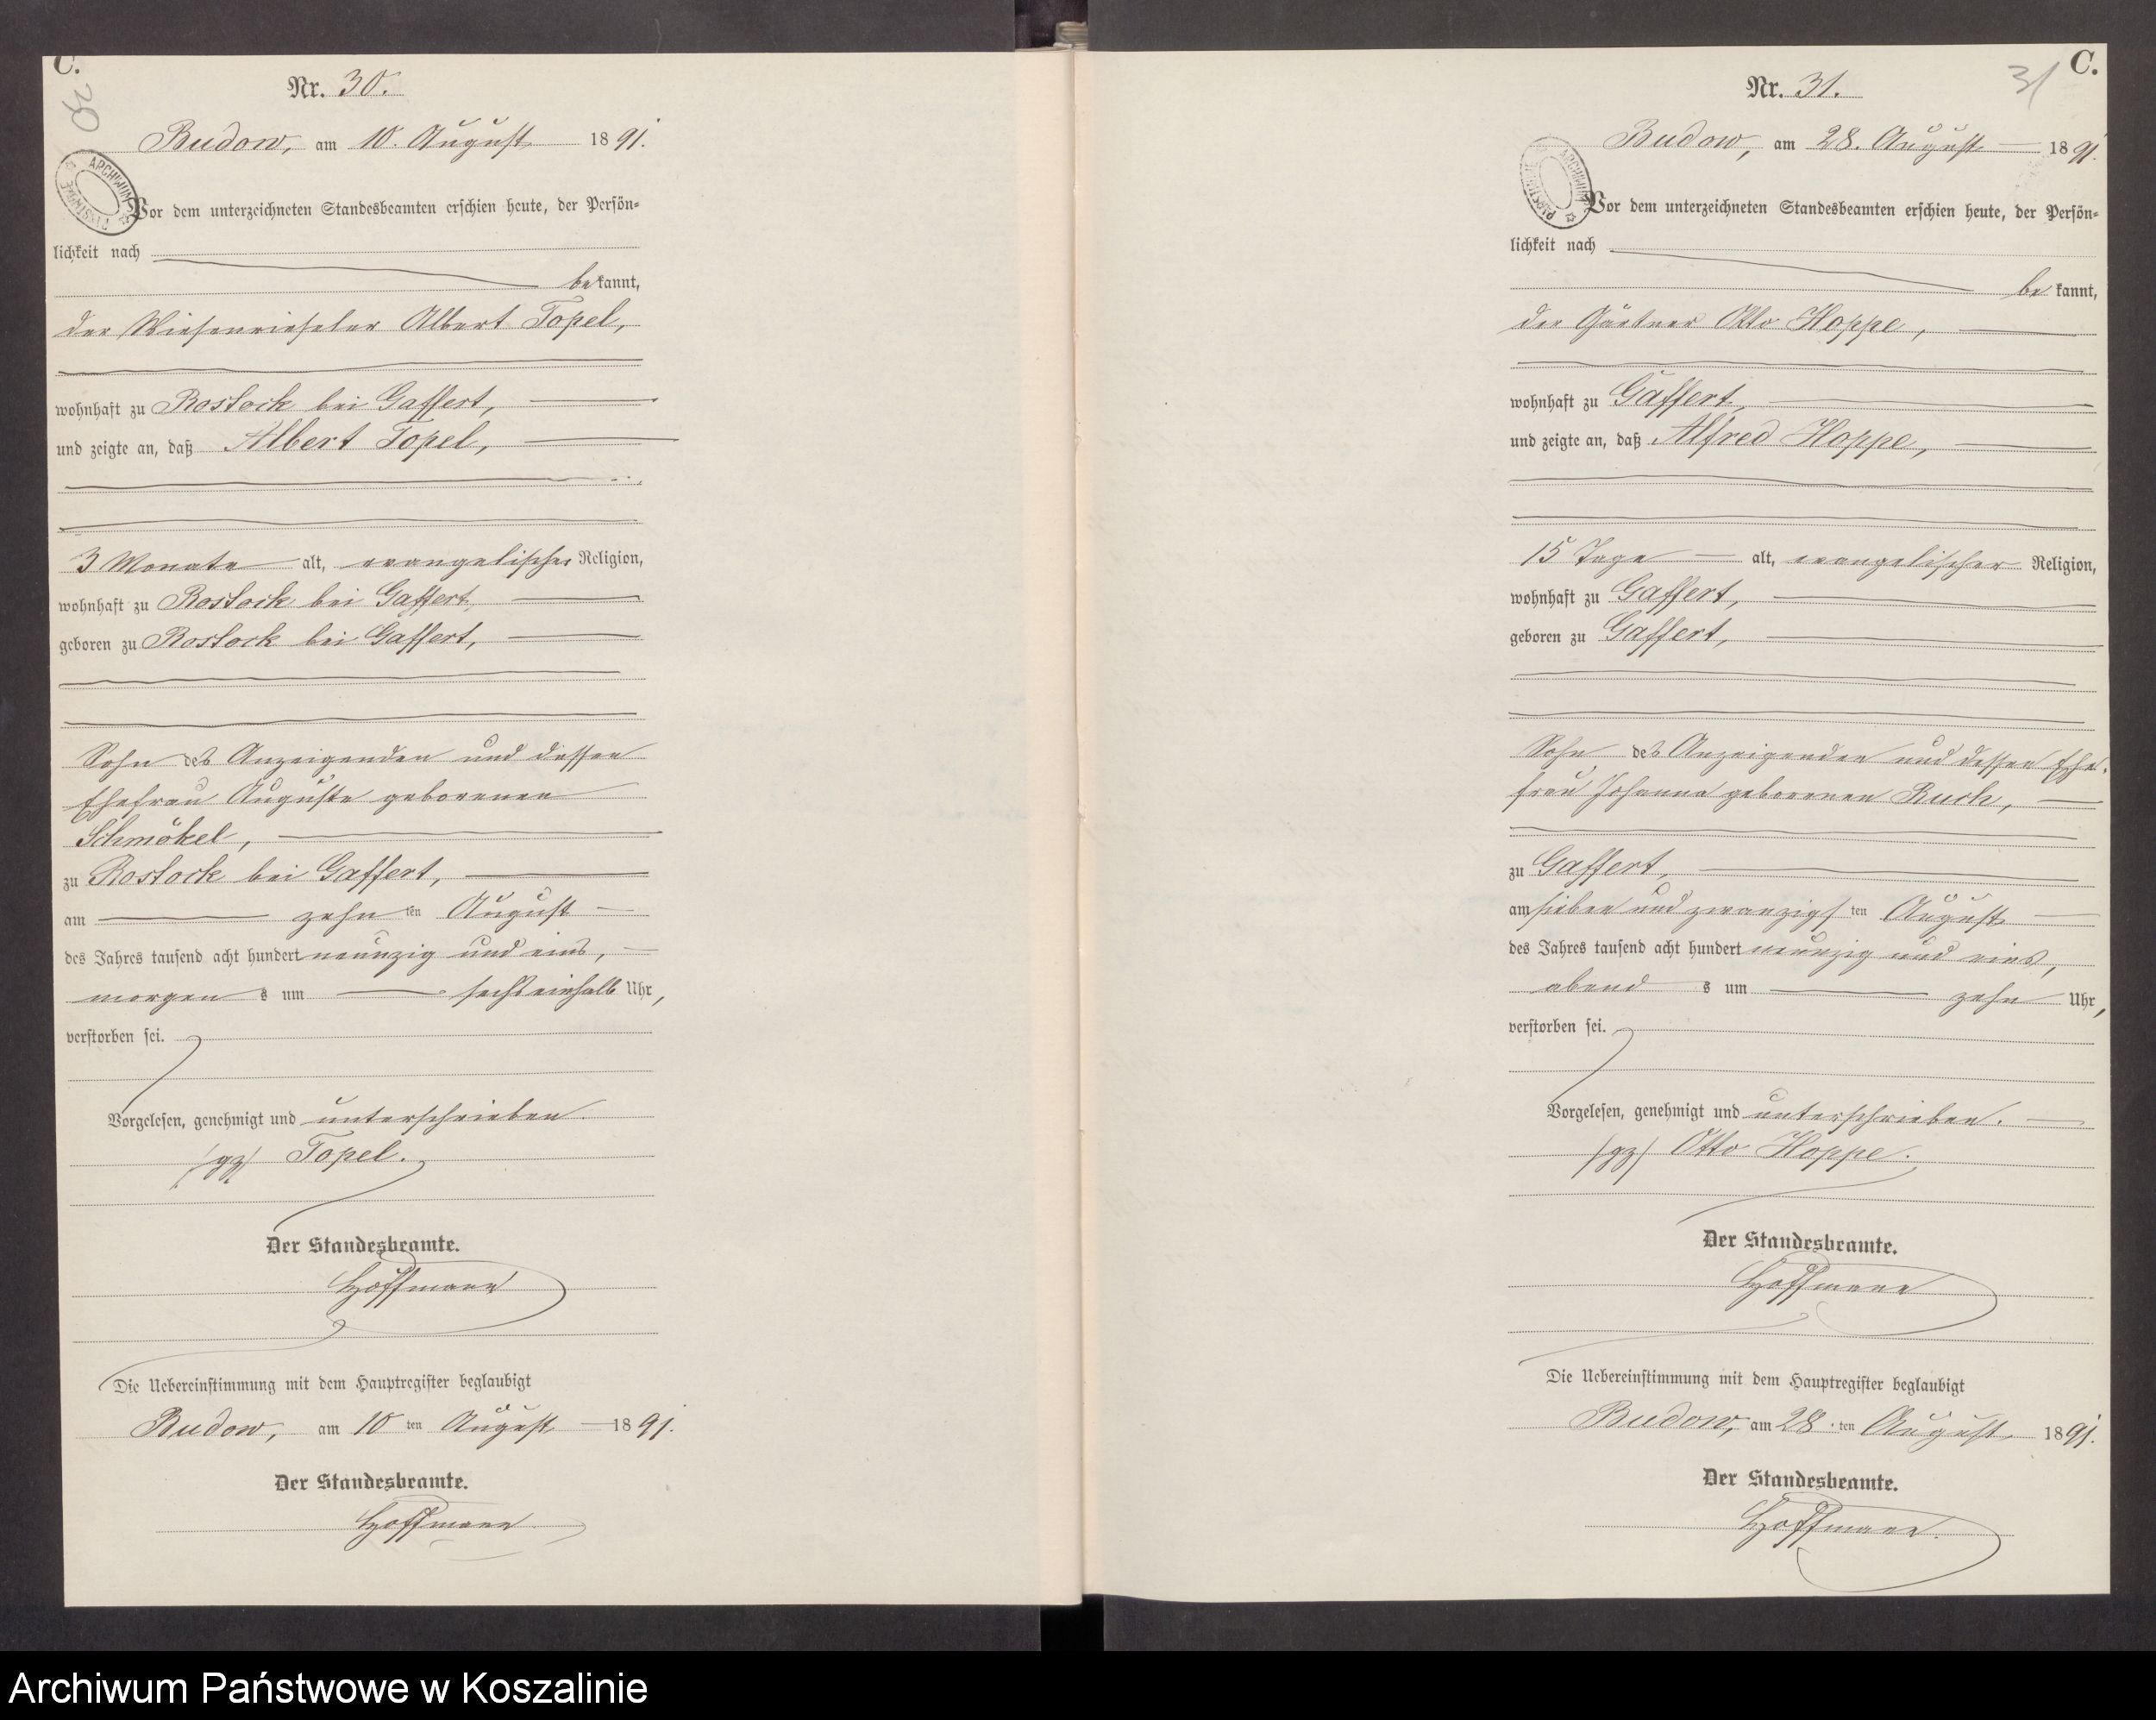 C.
30
Nr. 30.
Budow, am 10. August 1891.
Vor dem unterzeichneten Standesbeamten erschien heute, der Persön-
lichkeit nach
bekannt,
der Wiesenrieseler Albert Topel,
wohnhaft zu Rostock bei Gaffert,
und zeigte an, daß Albert Topel,
3 Monate alt, evangelischer Religion,
wohnhaft zu Rostock bei Gaffert,
geboren zu Rostock bei Gaffert,
Sohn des Anzeigenden und dessen
Ehefrau Auguste geborenen
Schmökel,
zu Rostock bei Gaffert,
am zehn ten August
des Jahres tausend acht hundert neunzig und eins,
morgen s um sechseinhalb Uhr,
verstorben sei.
Vorgelesen, genehmigt und unterschrieben
(gz) Topel.
Der Standesbeamte.
Hoffmann
Die Uebereinstimmung mit dem Hauptregister beglaubigt
Budow, am 10 ten August 1891.
Der Standesbeamte.
Hoffmann
C.
31
Nr. 31.
Budow, am 28. August 1891.
Vor dem unterzeichneten Standesbeamten erschien heute, der Persön-
lichkeit nach
bekannt,
der Gärtner Otto Hoppe,
wohnhaft zu Gaffert,
und zeigte an, daß Alfred Hoppe,
15 Tage alt, evangelischer Religion,
wohnhaft zu Gaffert,
geboren zu Gaffert,
Sohn des Anzeigenden und dessen Ehe-
frau Johanna geborenen Ruch,
zu Gaffert,
am sieben und zwanzigs ten August
des Jahres tausend acht hundert neunzig und eins,
abend s um zehn Uhr,
verstorben sei.
Vorgelesen, genehmigt und unterschrieben.
(gz) Otto Hoppe.
Der Standesbeamte.
Hoffmann
Die Uebereinstimmung mit dem Hauptregister beglaubigt
Budow, am 28 ten August 1891.
Der Standesbeamte.
Hoffmann.
Archiwum Państwowe w Koszalinie